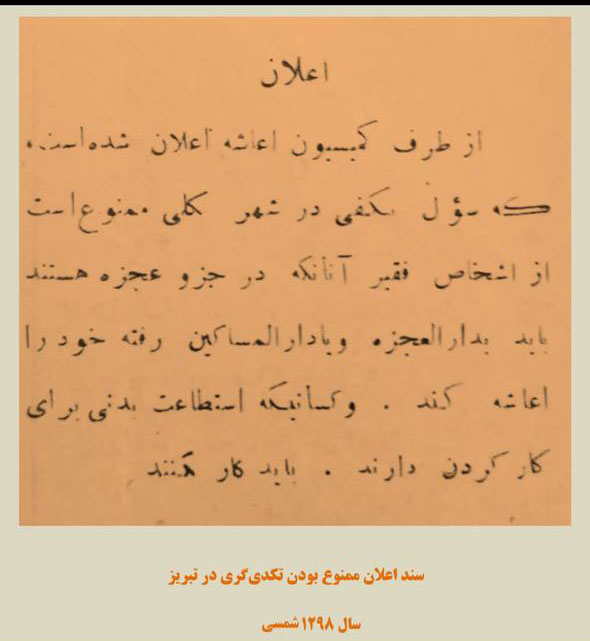 اعلان
از طرف کمیسیون اعاشه اعلان شده است،
که سؤل بکفی در شهر کلی ممنوع است
از اشخاص فقیر آنانکه در جزو عجزه هستند
باید بدارالعجزه ویادارالمساکین رفته خود را
اعاشه کند . وکسانیکه استطاعت بدنی برای
کار کردن دارند . باید کار کنند
سند اعلان ممنوع بودن تکدی‌گری در تبریز
سال ۱۲۹۸ شمسی